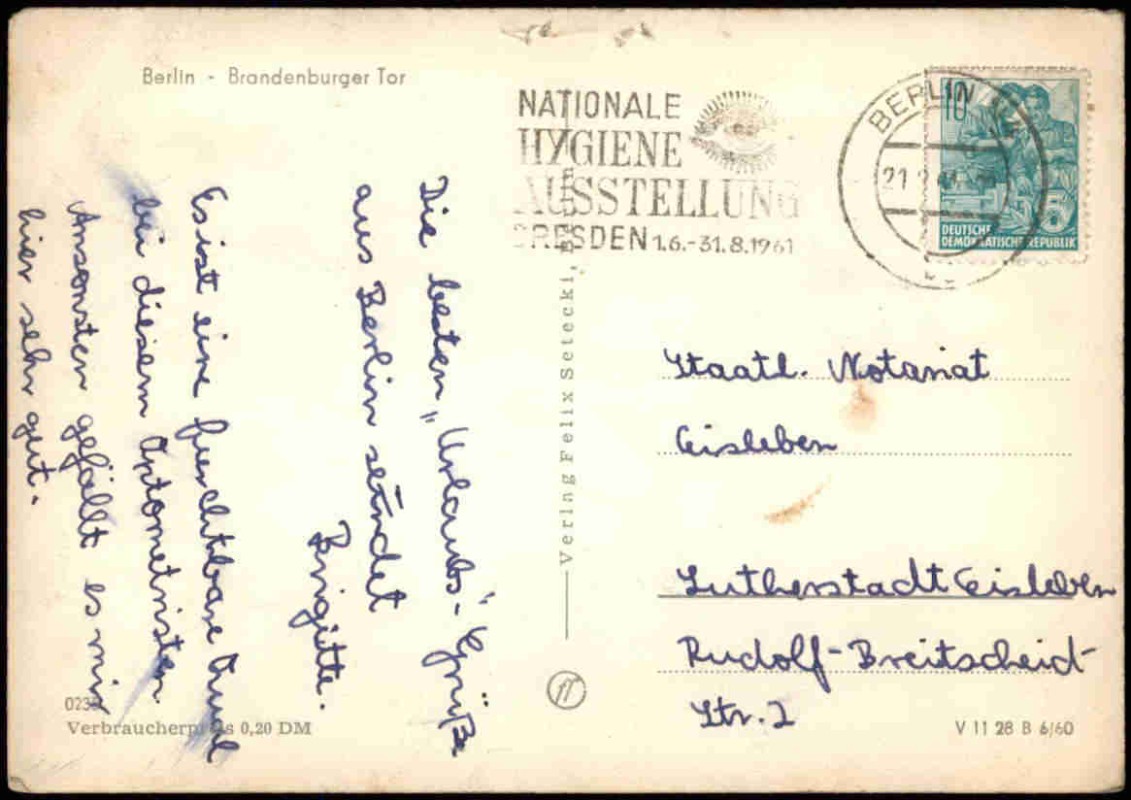 Berlin - Brandenburger Tor
NATIONALE
HYGIENE
AUSSTELLUNG
DRESDEN 1.6.-31.8.1961
BERLIN
21.2.61
10
5
DEUTSCHE
DEMOKRATISCHE REPUBLIK
Die besten „Urlaubs"-Grüße
aus Berlin sendet
Brigitte.
Es ist eine furchtbare Qual
bei diesem Optometristen.
Ansonsten gefällt es mir
hier sehr gut.
Verlag Felix Setecki, Berlin
Staatl. Notariat
Eisleben
Lutherstadt Eisleben
Rudolf-Breitscheid-
Str. 2
Verbraucherpreis 0,20 DM
V 11 28 B 6/60